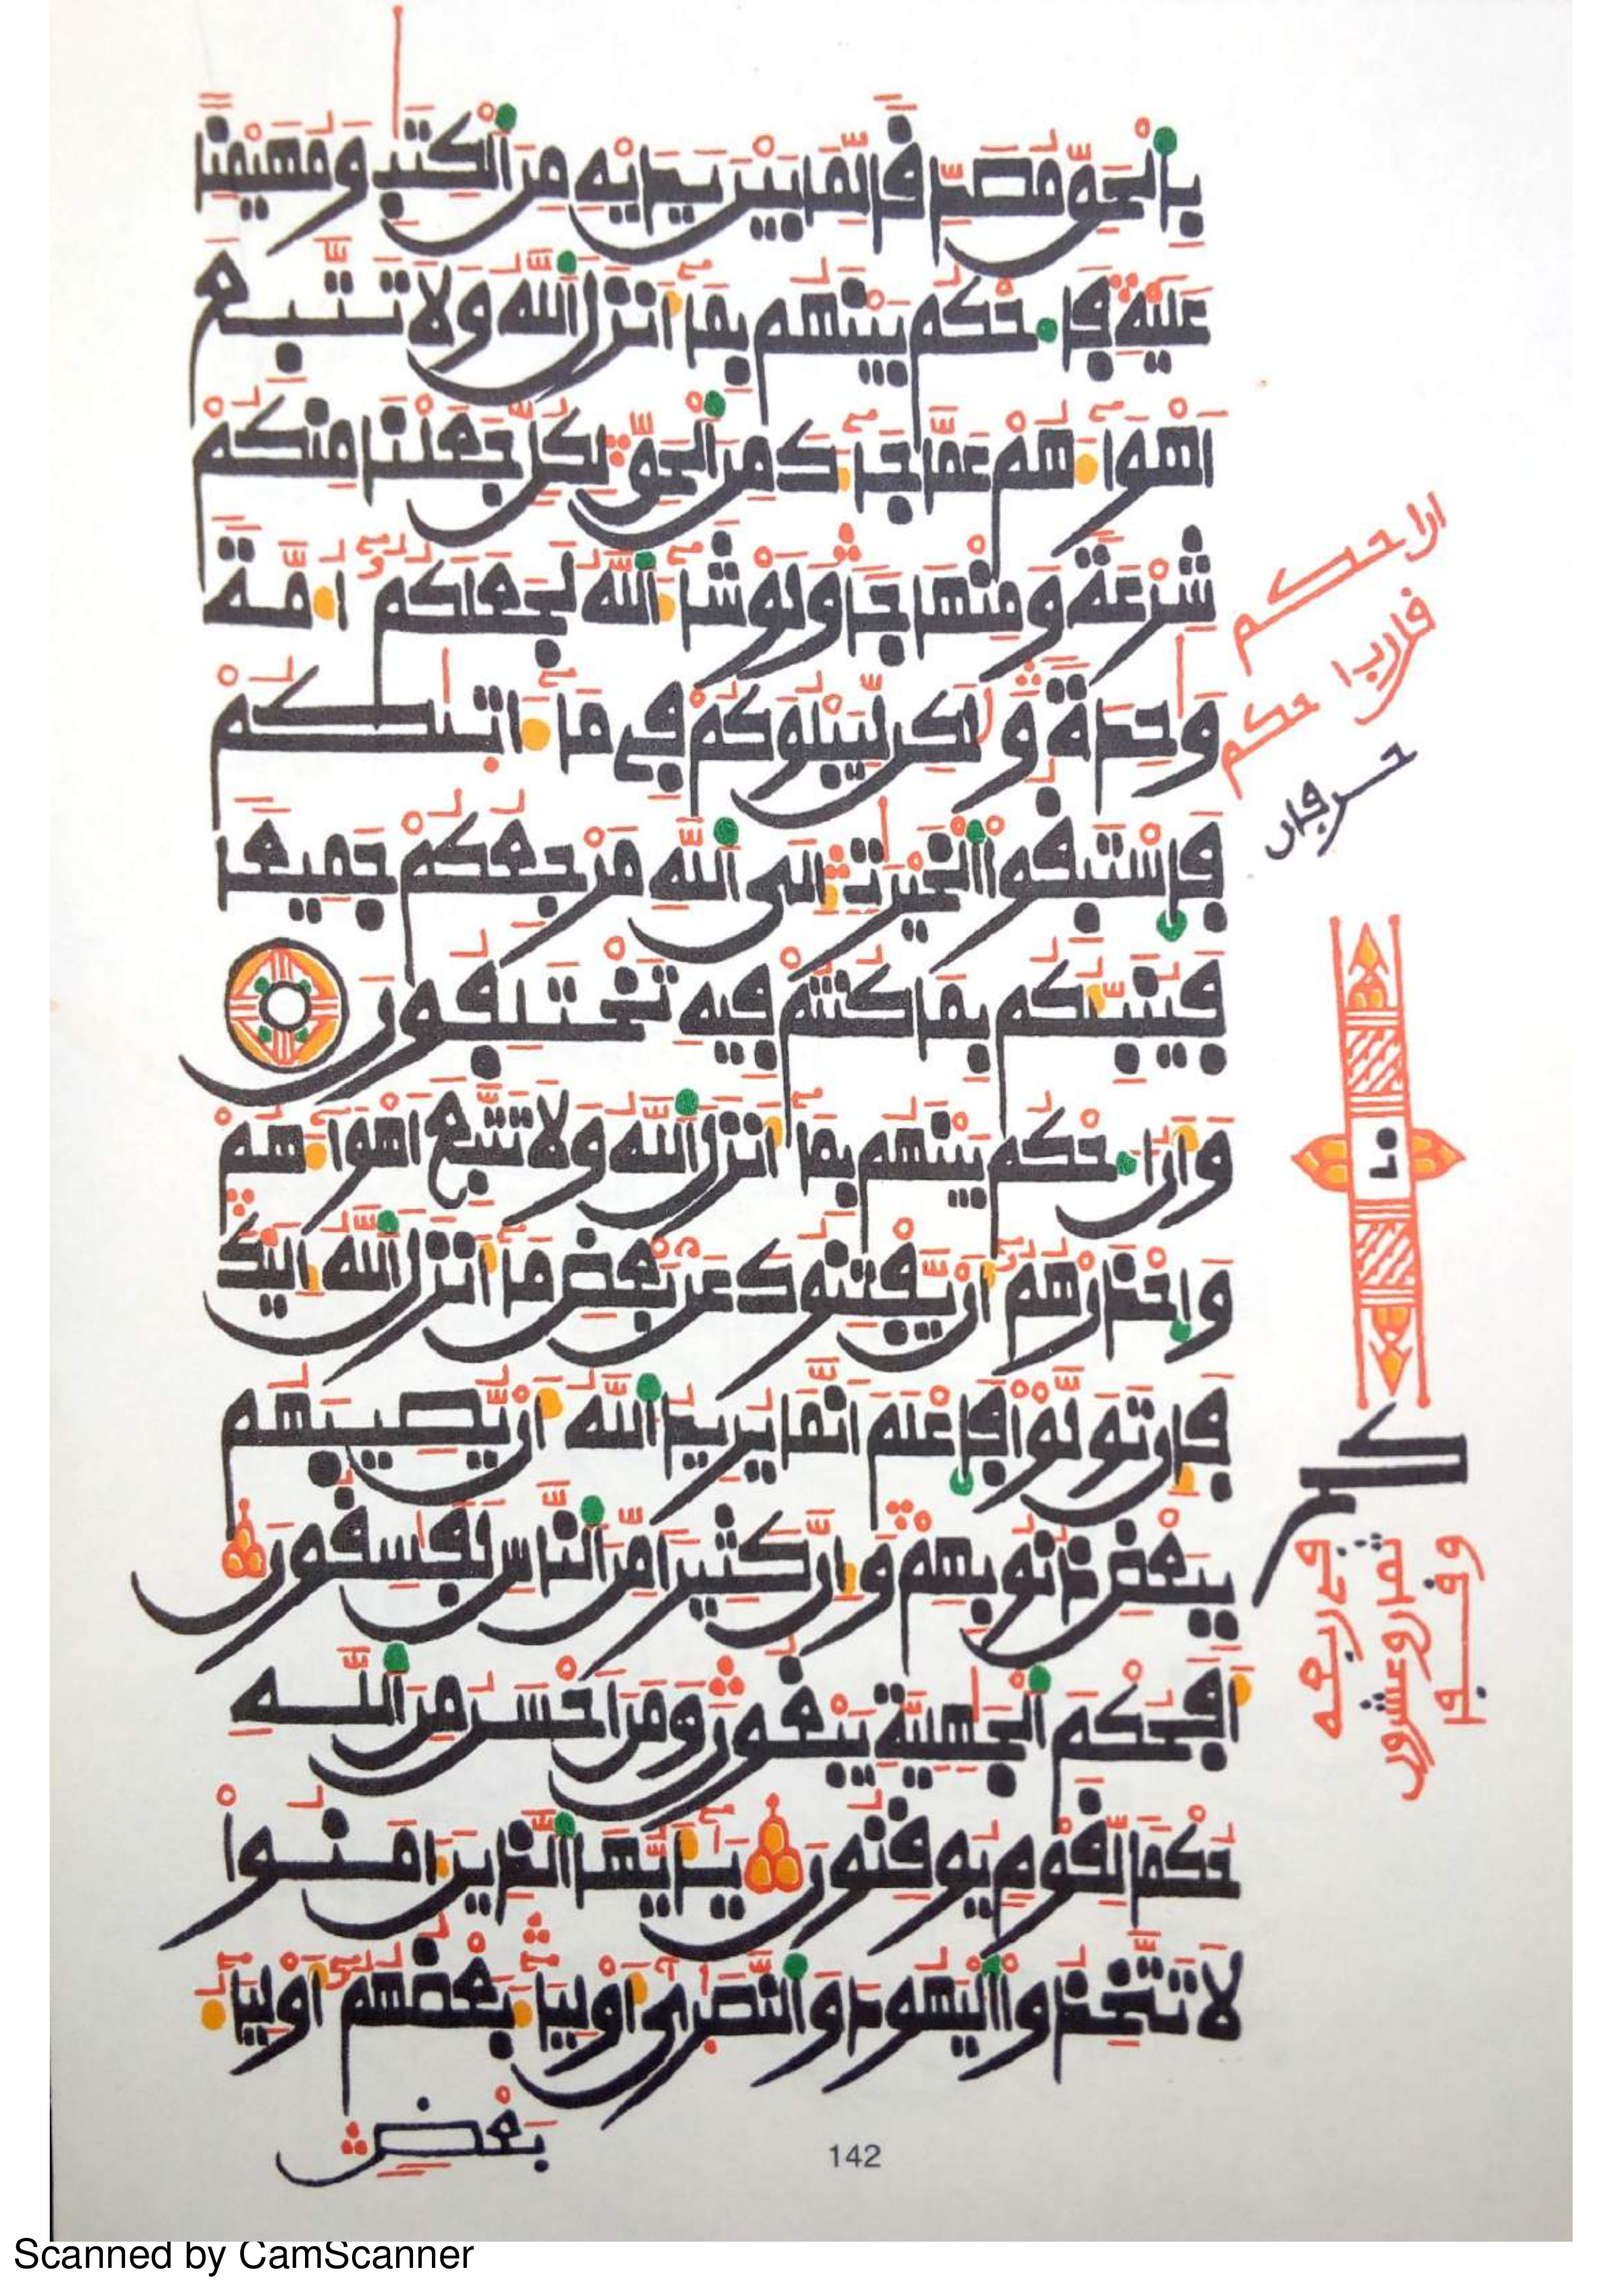 بِالْحَقِّ مُصَدِّقاً لِّمَا بَيْنَ يَدَيْهِ مِنَ الْكِتَٰبِ وَمُهَيْمِناً
عَلَيْهِ فَاحْكُم بَيْنَهُم بِمَا أَنزَلَ اللَّهُ وَلَا تَتَّبِعَ
اَهْوَآءَهُمْ عَمَّا جَآءَكَ مِنَ الْحَقِّ لِكُلٍّ جَعَلْنَا مِنكُمْ
شِرْعَةً وَمِنْهَاجاً وَلَوْ شَآءَ اللَّهُ لَجَعَلَكُمُ أُمَّةً
وَٰحِدَةً وَلَٰكِن لِّيَبْلُوَكُمْ فِي مَآ ءَاتَىٰكُمْ
فَاسْتَبِقُوا الْخَيْرَٰتِ إِلَى اللَّهِ مَرْجِعُكُمْ جَمِيعاً
فَيُنَبِّئُكُم بِمَا كُنتُمْ فِيهِ تَخْتَلِفُونَ
وَأَنُ احْكُم بَيْنَهُم بِمَآ أَنزَلَ اللَّهُ وَلَا تَتَّبِعَ اَهْوَآءَهُمْ
وَاحْذَرْهُمُ أَن يَّفْتِنُوكَ عَن بَعْضِ مَآ أَنزَلَ اللَّهُ إِلَيْكَ
فَإِن تَوَلَّوْا فَاعْلَمَ اَنَّمَا يُرِيدُ اللَّهُ أَن يُّصِيبَهُم
بِبَعْضِ ذُنُوبِهِمْ وَإِنَّ كَثِيراً مِّنَ النَّاسِ لَفَٰسِقُونَ
أَفَحُكْمَ الْجَٰهِلِيَّةِ يَبْغُونَ وَمَنَ اَحْسَنُ مِنَ اللَّهِ
حُكْماً لِّقَوْمٍ يُوقِنُونَ يَٰأَيُّهَا الَّذِينَ ءَامَنُوا
لَا تَتَّخِذُوا الْيَهُودَ وَالنَّصَٰرَىٰ أَوْلِيَآءَ بَعْضُهُمُ أَوْلِيَآءُ
بَعْضٍ
ان احكم
فان يدا حكم
حرفان
٥٠
142
Scanned by CamScanner